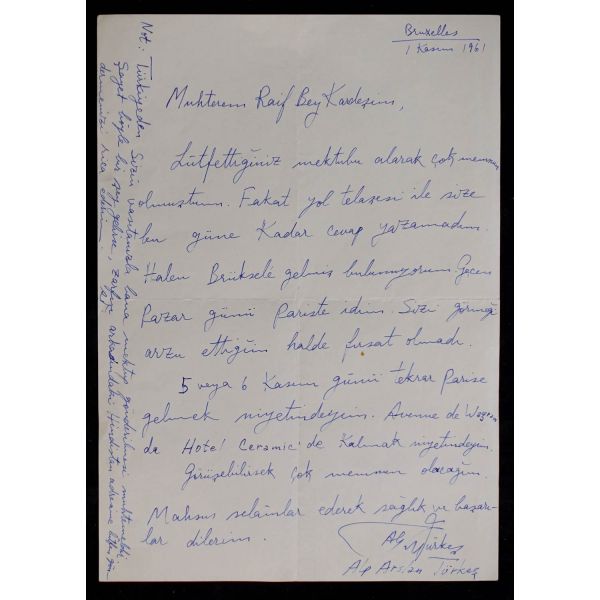 Bruxelles
1 Kasım 1961
Muhterem Raif Bey Kardeşim,
Lûtfettiğiniz mektubu alarak çok memnun
olmuştum. Fakat yol telaşesi ile size
bu güne kadar cevap yazamadım.
Halen Brüksele gelmiş bulunuyorum. Geçen
Pazar günü Pariste idim. Sizi görmeği
arzu ettiğim halde fırsat olmadı.
5 veya 6 Kasım günü tekrar Parise
gelmek niyetindeyim. Avenue de Wagram
da Hotel Ceramic'de kalmak niyetindeyim.
Görüşebilirsek çok memnun olacağım.
Mahsus selamlar ederek sağlık ve başarı-
lar dilerim.
Alp Türkeş
Alp Arslan Türkeş
Not: Türkiyeden Sizin vasıtanızla bana mektup gönderilmesi muhtemeldir.
Şayet böyle bir şey gelirse, zarfın arkasındaki Hindistan adresime lütfen gön-
dermenizi rica ederim.